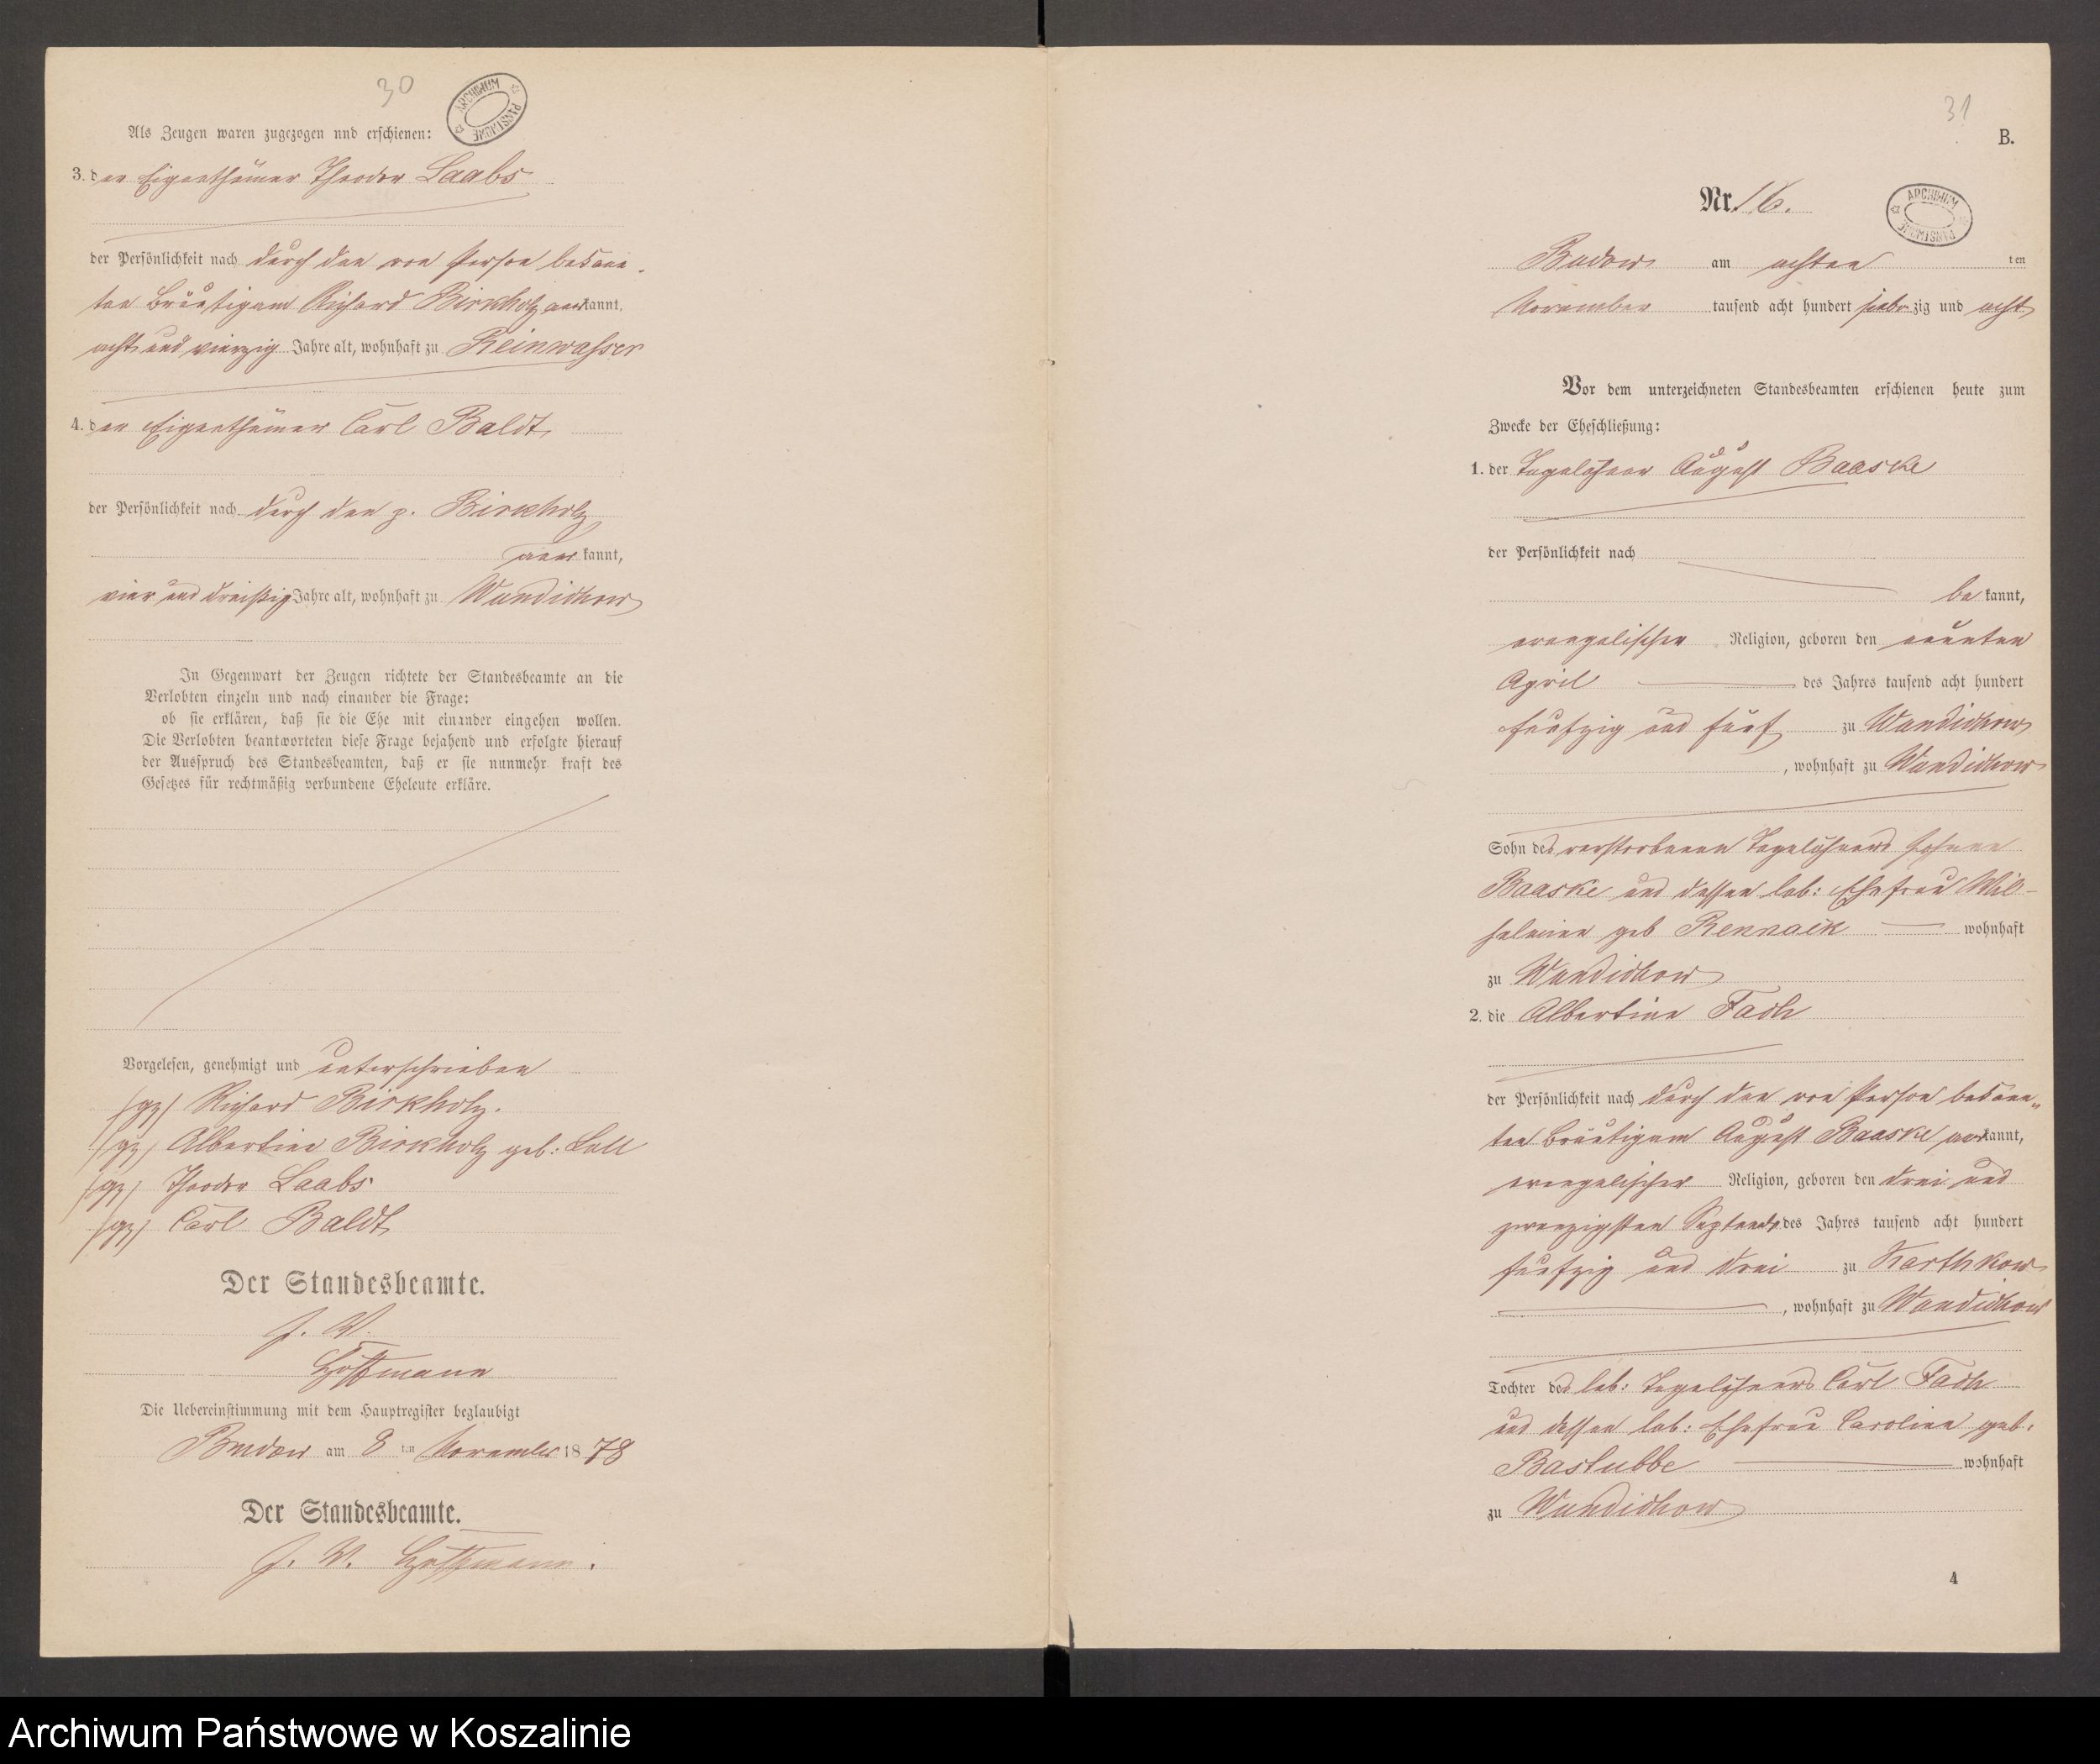 30
ARCHIWUM PAŃSTWOWE
Als Zeugen waren zugezogen und erschienen:
3. der Eigenthümer Theodor Laabs
der Persönlichkeit nach durch den von Person bekann-
ten Bräutigam Richard Birkholz anerkannt,
acht und vierzig Jahre alt, wohnhaft zu Reinwasser
4. der Eigenthümer Carl Baldt
der Persönlichkeit nach durch den p. Birkholz
anerkannt,
vier und dreißig Jahre alt, wohnhaft zu Wundichow
In Gegenwart der Zeugen richtete der Standesbeamte an die
Verlobten einzeln und nach einander die Frage:
ob sie erklären, daß sie die Ehe mit einander eingehen wollen.
Die Verlobten beantworteten diese Frage bejahend und erfolgte hierauf
der Ausspruch des Standesbeamten, daß er sie nunmehr kraft des
Gesetzes für rechtmäßig verbundene Eheleute erkläre.
Vorgelesen, genehmigt und unterschrieben
(gz) Richard Birkholz.
(gz) Albertine Birkholz geb:
(gz) Theodor Laabs
(gz) Carl Baldt
Der Standesbeamte.
J. V.
Hoffmann
Die Uebereinstimmung mit dem Hauptregister beglaubigt
Budow am 8 ten November 1878
Der Standesbeamte.
J. V. Hoffmann.
31
B.
Nr. 16.
ARCHIWUM PAŃSTWOWE
Budow am achten ten
November tausend acht hundert siebenzig und acht
Vor dem unterzeichneten Standesbeamten erschienen heute zum
Zwecke der Eheschließung:
1. der Tagelöhner August Baaske
der Persönlichkeit nach
bekannt,
evangelischer Religion, geboren den neunten
April des Jahres tausend acht hundert
fünfzig und fünf zu Wundichow
, wohnhaft zu Wundichow
Sohn des verstorbenen Tagelöhners Johann
Baaske und dessen leb: Ehefrau Wil-
helmine geb Rennack wohnhaft
zu Wundichow
2. die Albertine Fach
der Persönlichkeit nach durch den von Person bekann-
ten Bräutigam August Baaske anerkannt,
evangelischer Religion, geboren den drei und
zwanzigsten September des Jahres tausend acht hundert
fünfzig und drei zu Karthkow
, wohnhaft zu Wundichow
Tochter des leb: Tagelöhners Carl Fach
und dessen leb: Ehefrau Caroline geb:
Bastubbe wohnhaft
zu Wundichow
4
Archiwum Państwowe w Koszalinie